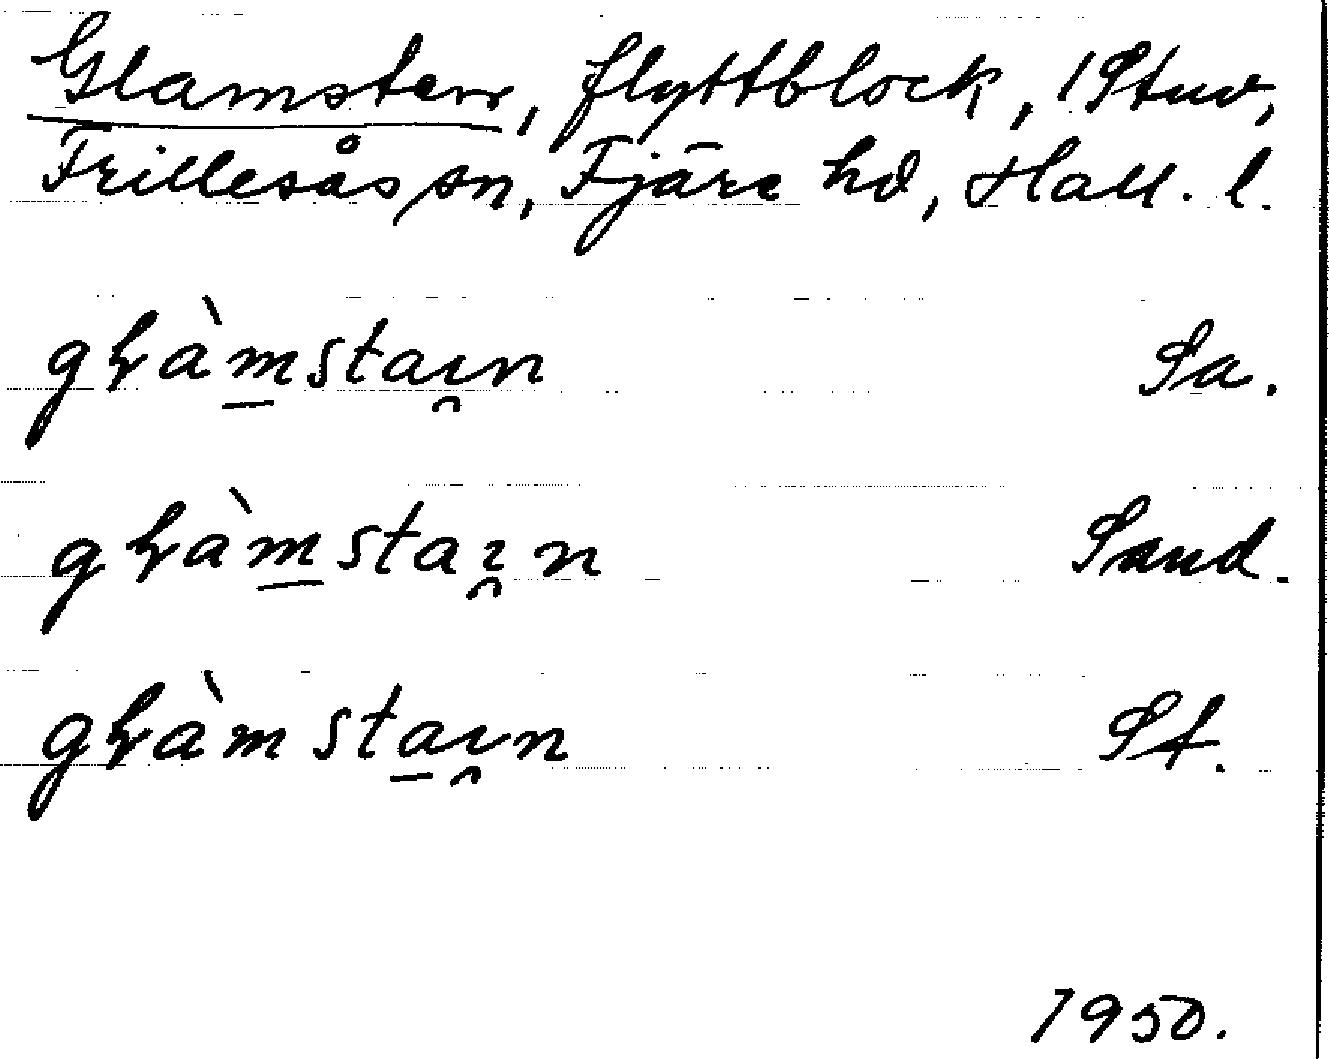 Glamsten, flyttblock, 1 Stuv,
Frillesås sn, Fjäre hd, Hall. l.
głàmstaı̯n Sa.
głàmstaı̯n Sand.
głàmstaı̯n St.
1950.